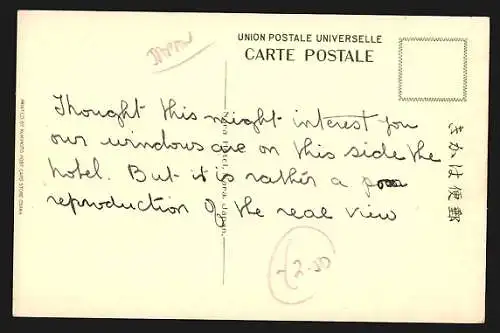 JAPAN
UNION POSTALE UNIVERSELLE
CARTE POSTALE
Thought this might interest you
our windows are on this side the
hotel. But it is rather a poor
reproduction of the real view
きかは便郵
Nara Hotel, Nara, Japan.
2.50